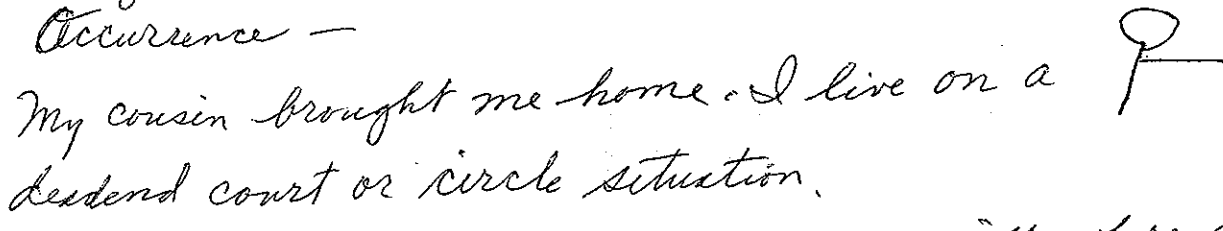 Occurrence —
My cousin brought me home. I live on a
deadend court or circle situation.